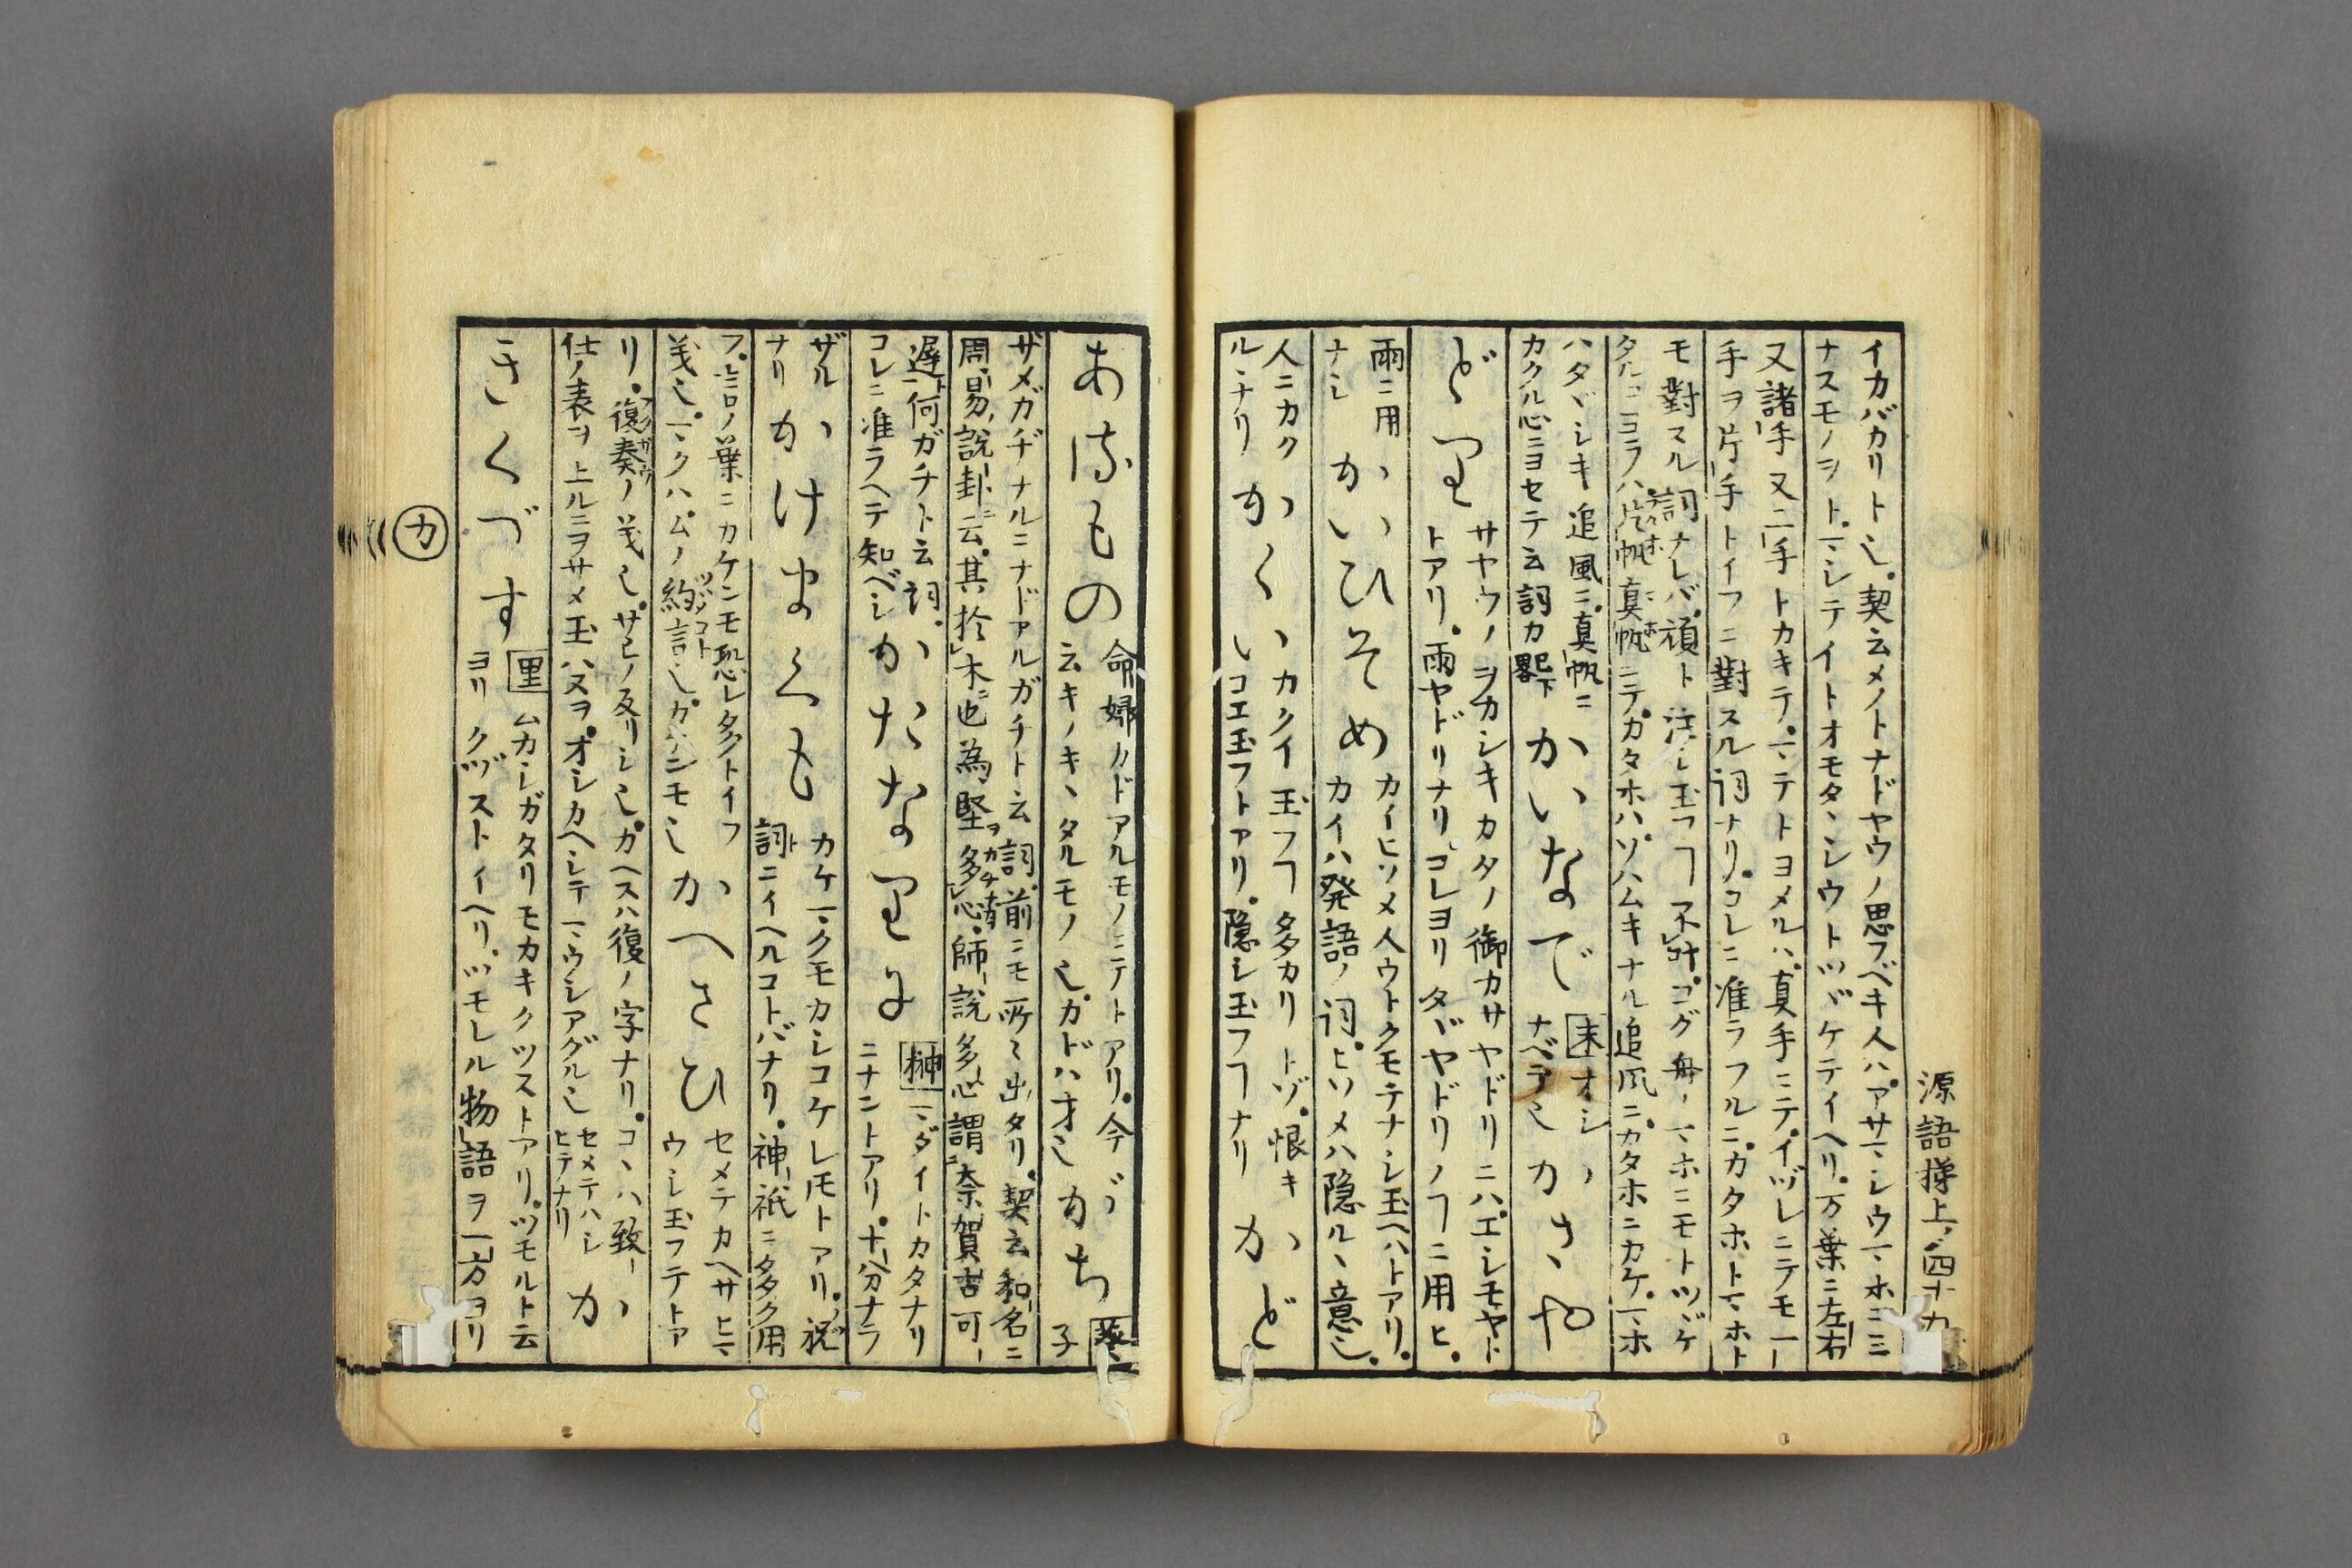 源語梯上ノ四十九
イカバカリト也。契云メノトナドヤウノ思フベキ人ハアサマシウマホニミ
ナスモノヲト。マシテイトオモタヽシウトツヾケテイヘリ。万葉ニ左右
又諸手又二手トカキテ。マテトヨメルハ。真手ニテ。イヅレニテモ一
手ヲ片手トイフニ對スル詞ナリ。コレニ准ラフルニ。カタホトマホト
モ對スル詞ナレバ。頑ト注シ玉フヿ不叶。コグ舟ノマホニモトツヾケ
タルニヨラハ片帆真帆ニテ。カタホハソハムキナル追風ニ。カタホニカケ。マホ
ハタヾシキ追風ニ。真帆ニ
カクル心ニヨセテ云詞カ畧下
かいなで
末オシ
ナベテ也
かさや
どり
サヤウノヲカシキカタノ御カサヤドリニハ。エシモヤト
トアリ。雨ヤドリナリ。コレヨリタヾヤドリノヿニ用ヒ。
雨ニ用
ナシ
かいひそめ
カイヒソメ人ウトクモテナシ玉ヘハトアリ。
カイハ発語ノ詞。ヒソメハ隠ルヽ意也。
人ニカク
ルヽナリ
かくい
カクイ玉フヿ多カリトゾ。恨キ
コエ玉フトアリ。隠シ玉フヿナリ
かど
あるもの
命婦カドアルモノニテトアリ。今
云キノキヽタルモノ也。カドハオ也
がち
葵
子
ザメガヂナルニナドアルガチト云詞。前ニモ所々出タリ。契云和名ニ
周易説卦云。其於木也為堅多心。師説多心謂奈賀古可
遅。何ガチト云詞。
コレニ准ラヘテ知ベシ
かたなりに
榊マダイトカタナリ
ニナントアリ。十分ナラ
ザル
ナリ
かけまくも
カケマクモカシコケレ𪜈トアリ。祝
詞ニイヘルコトバナリ。神祇ニ多ク用
フ。言ノ葉ニカケンモ恐レ多トイフ
義也。マクハ。ムノ約言也。カケンモ也
かへさひ
セメテカヘサヒマ
ウシ玉フテトア
リ。復奏ノ義也。サヒノ反リシ也。カヘスハ復ノ字ナリ。コヽハ致
仕ノ表ヲ上ルニヲサメ玉ハヌヲ。オシカヘシテマウシアグル也
セメテハシ
ヒテナリ
か
きくづす
里ムカシガタリモカキクツストアリ。ツモルト云
ヨリクヅストイヘリ。ツモレル物語ヲ一方ヨリ
カ